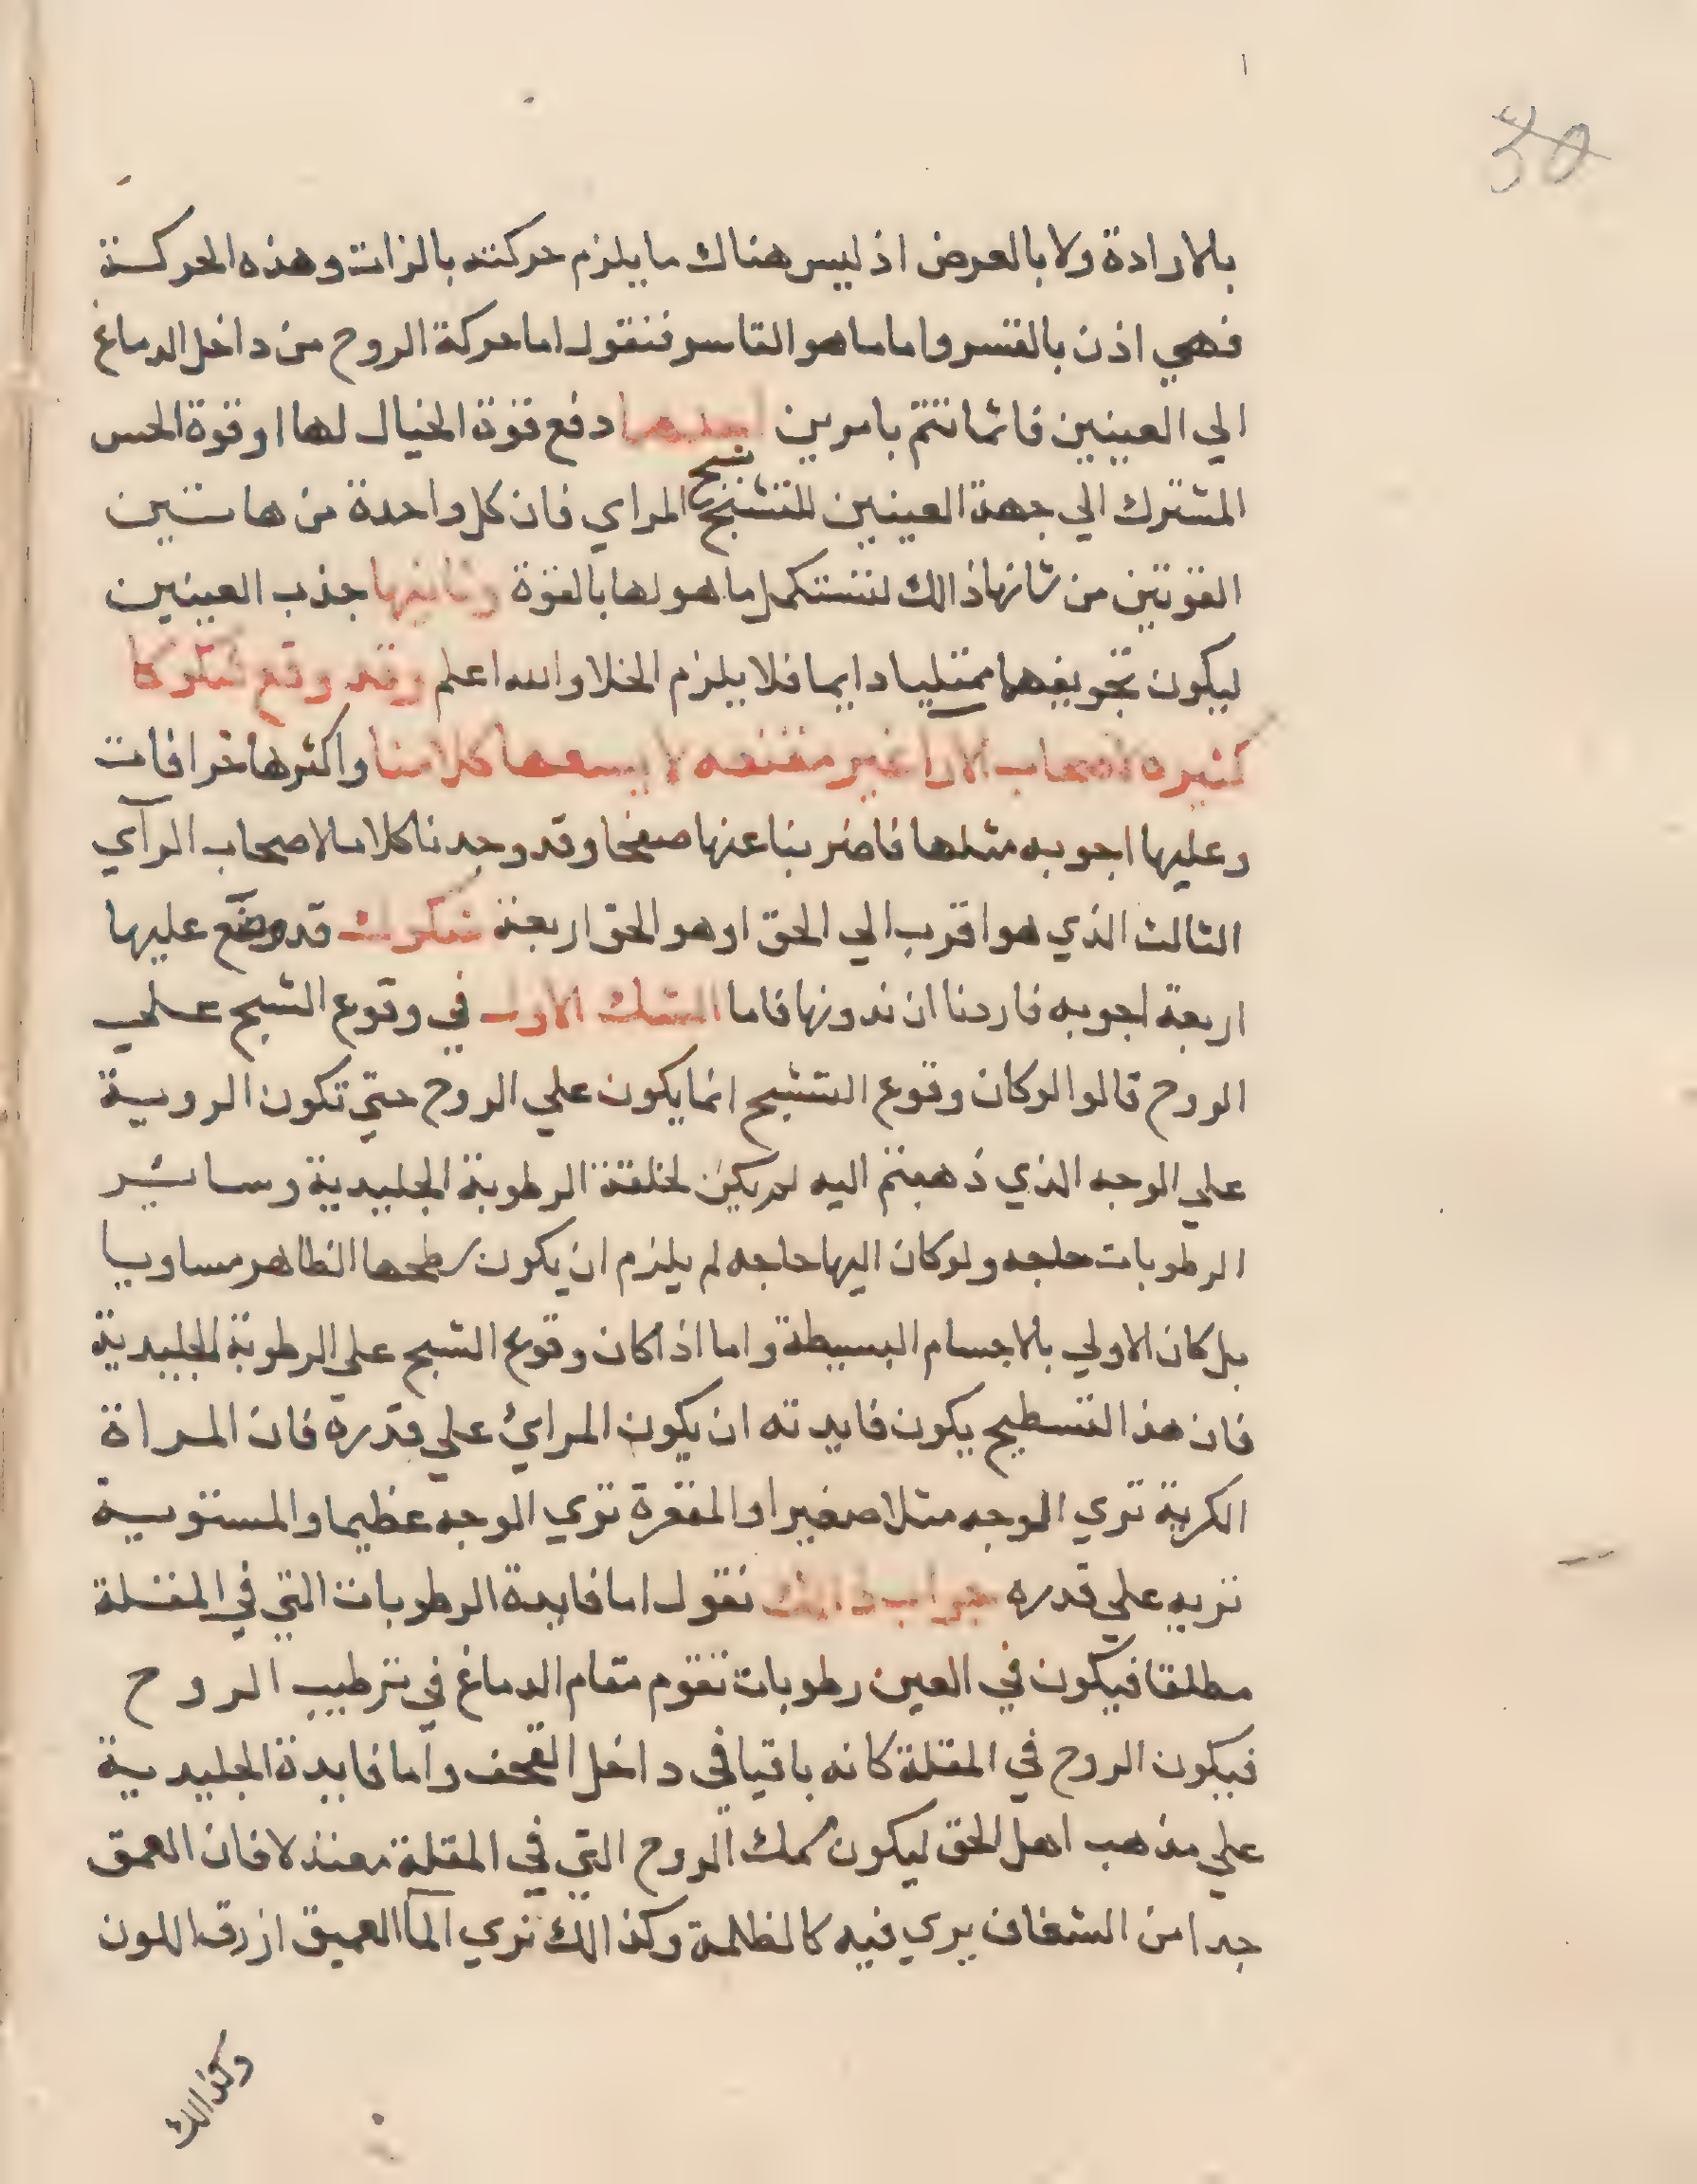 30
بالارادة ولا بالعرض اذ ليس هناك ما يلزم حركته بالذات وهذه الحركة
فهي اذن بالقسر واما ما هو القاسر فنقول اما حركة الروح من داخل الدماغ
الي العينين فانما تتم بامرين احدهما دفع قوة الخيال لها او قوة الحس
المشترك الي جهة العينين للتشبح شبح المراي فان كل واحدة من هاتين
القوتين من شانها ذالك لتستكمل ما هو لها بالقوة وثانيها جذب العينين
ليكون تجويفهما ممتليا دايما فلا يلزم الخلا والله اعلم وقد وقع شكوكا
كثيره لاصحاب الارا غير مقنعه لا يسعها كلامنا واكثرها خرافات
وعليها اجوبه مثلها فاضربنا عنها صفحا وقد وجدنا كلاما لاصحاب الرآي
الثالث الذي هو اقرب الي الحق او هو الحق اربعة شكوك قد وضع عليها
اربعة اجوبه فاردنا ان ندونها فاما الشك الاول في وقوع الشبح علي
الروح قالوا لو كان وقوع الشبح انما يكون علي الروح حتي تكون الروية
علي الوجه الذي ذهبتم اليه لم يكن لخلقة الرطوبة الجليدية وسائير
الرطوبات حاجه ولو كان اليها حاجه لم يلزم ان يكون سطحها الظاهر مساويا
بل كان الاولي بالاجسام البسيطة واما اذا كان وقوع الشبح علي الرطوبة الجليدية
فان هذا التسطيح يكون فايدته ان يكون المرايئ علي قدرة فان المراة
الكرية تري الوجه مثلا صغيرا والمقعرة تري الوجه عظيما والمستوية
تريه علي قدره جواب ذالك نقول اما فايدة الرطوبات التي في المقلة
مطلقا فيكون في العين رطوبات تقوم مقام الدماغ في ترطيب الروح
فيكون الروح في المقلة كانه باقيا في داخل القحف وآما فايدة الجليدية
علي مذهب اهل الحق ليكون سمك الروح التي في المقلة معتدلا فان العمق
جدا من الشفاف يري فيه كالظلمة وكذالك نري المآ العميق ازرق اللون
وكذالك